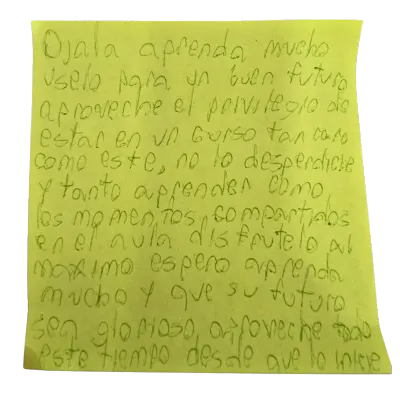 Ojala aprenda mucho
uselo para un buen futuro
aproveche el privilegio de
estar en un curso tan caro
como este, no lo desperdicie
y tanto aprender como
los momentos compartidos
en el aula, disfrutelo al
maximo espero aprenda
mucho y que su futuro
sea glorioso, aproveche todo
este tiempo desde que lo inicie